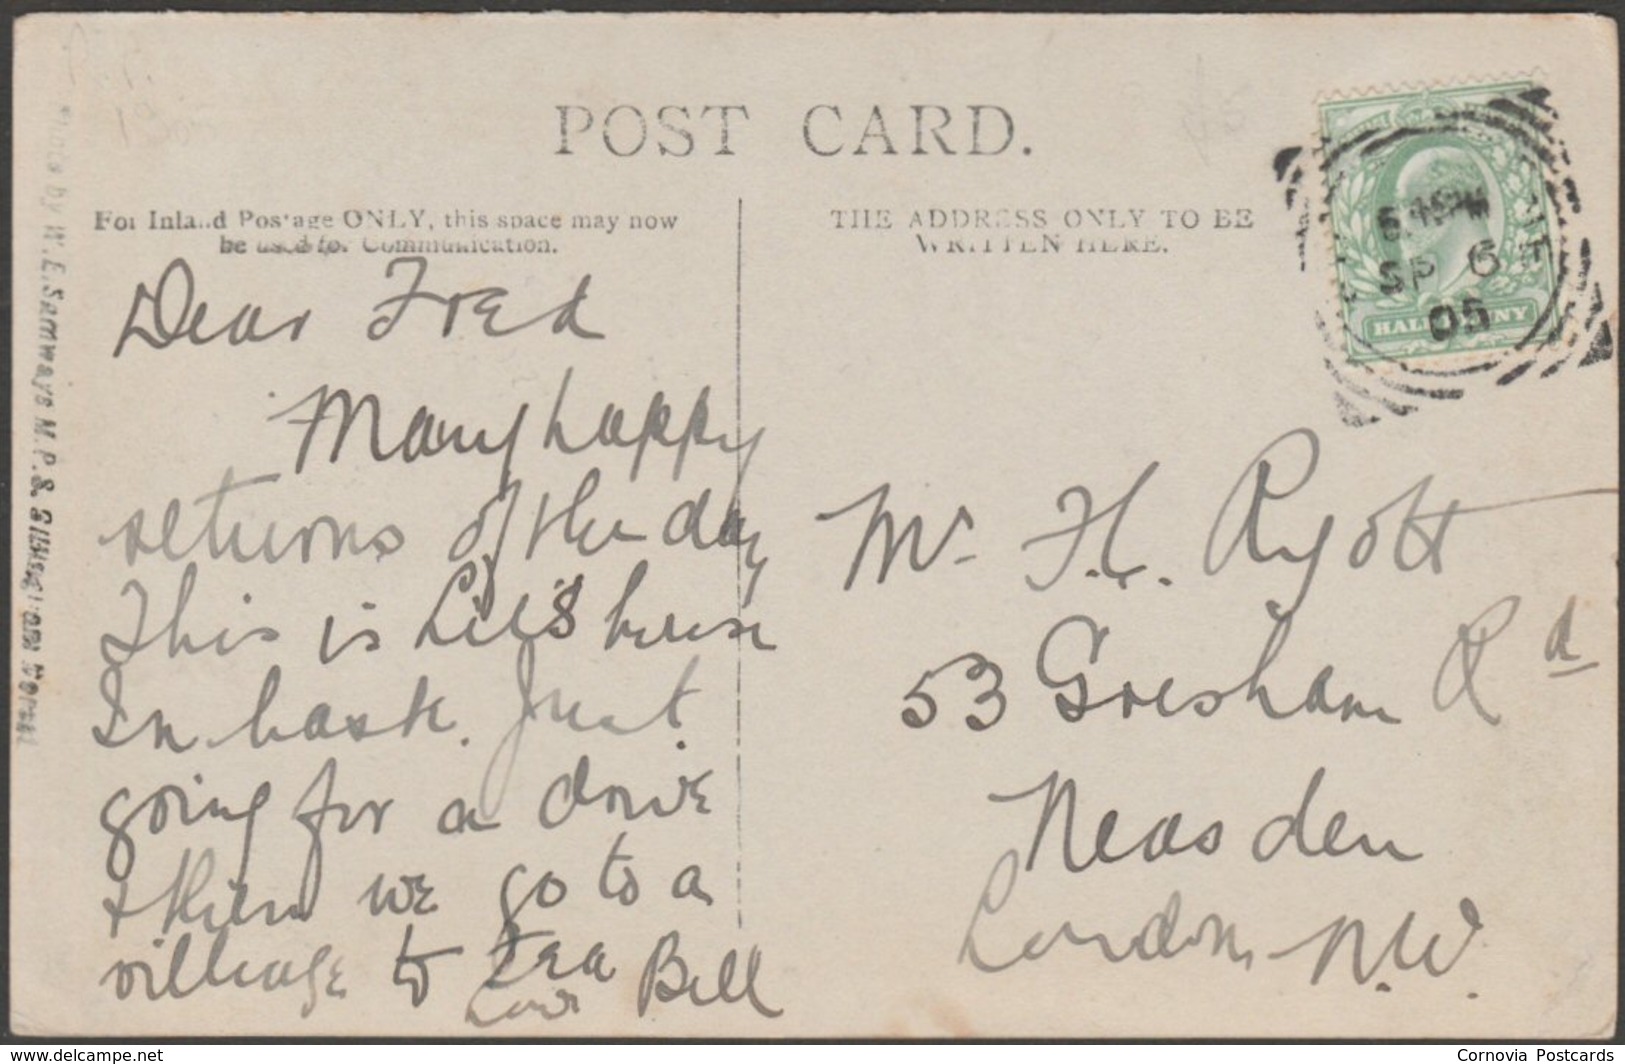 POST CARD.
For Inland Postage ONLY, this space may now
be used for Communication.
THE ADDRESS ONLY TO BE
WRITTEN HERE.
Photo by W.E. Samways M.P.S. Gillingham Dorset
6.45PM
SP 6
05
HALFPENNY
Dear Fred
Many happy
returns of the day
This is Lil's house
In haste. Just
going for a drive
& then we go to a
village to tea
Love Bill
Mr. F.C. Ryott
53 Gresham Rd
Neasden
London N.W.
delcampe.net
Cornovia Postcards